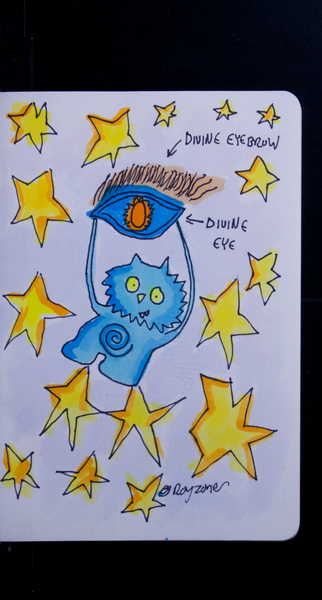 DIVINE EYEBROW
DIVINE
EYE
@Rayzoner